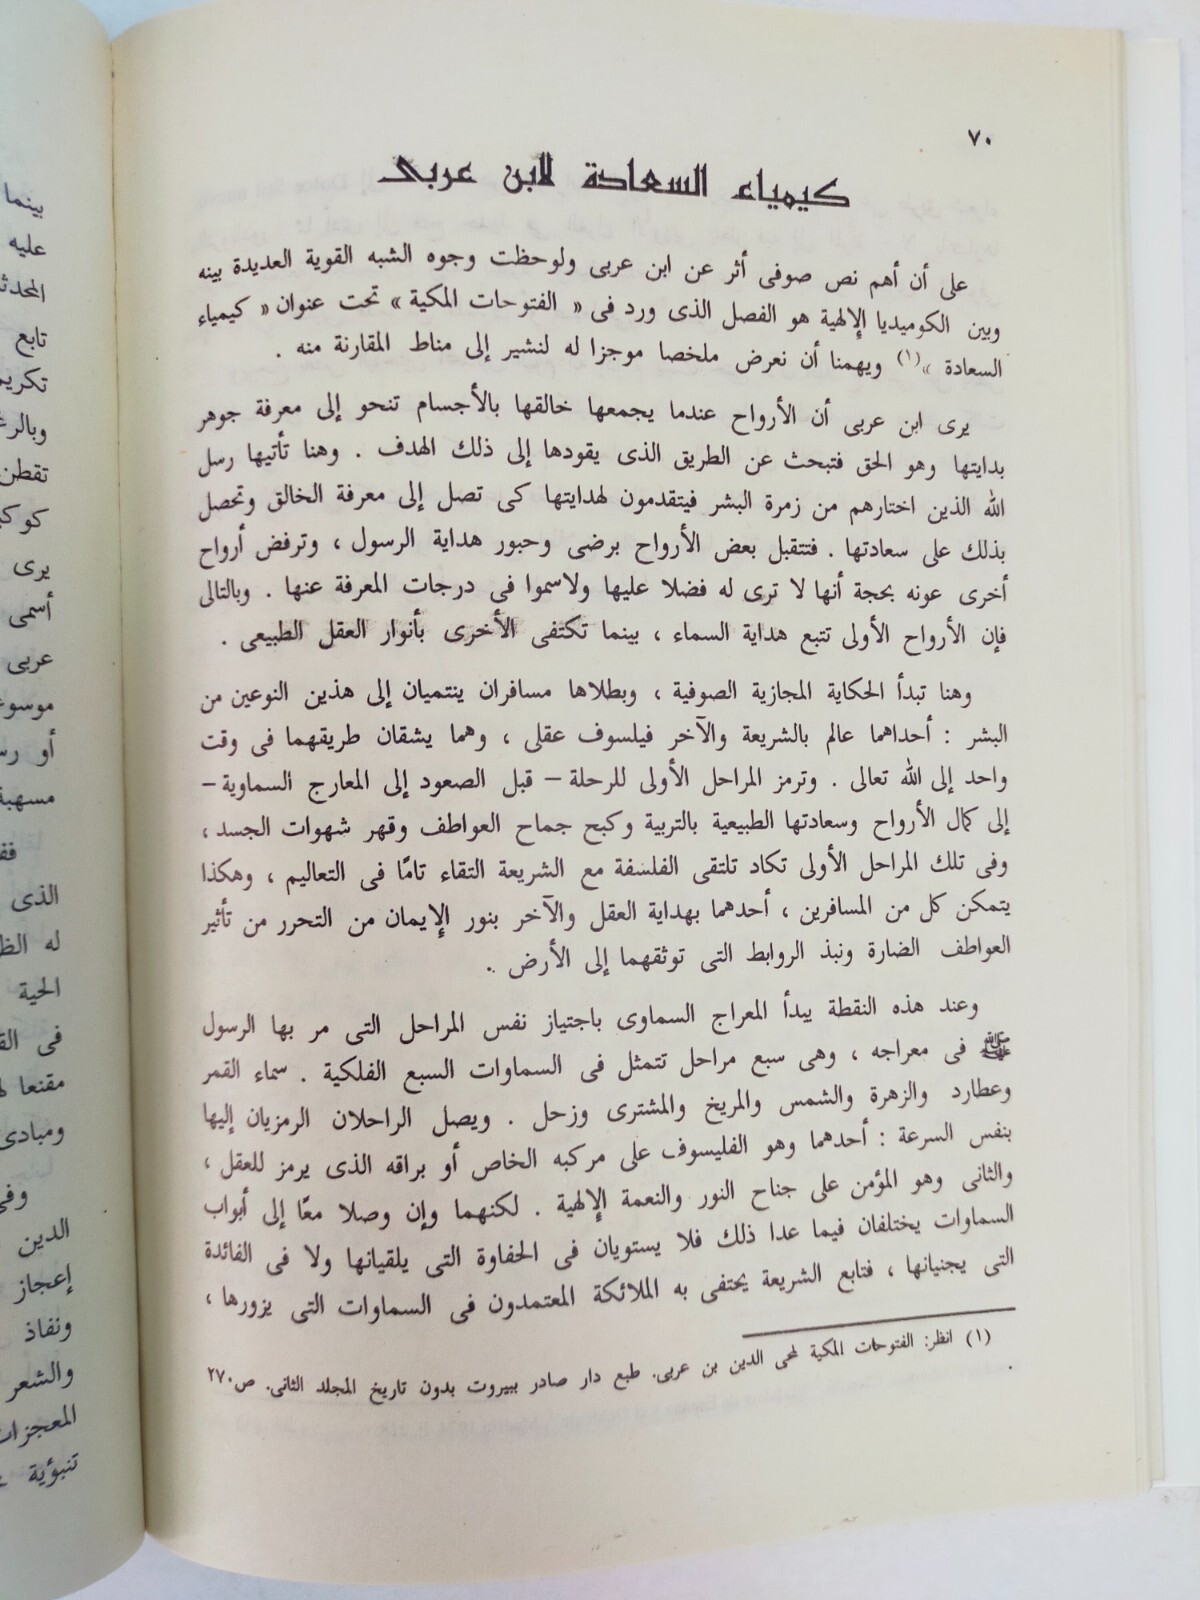 ٧٠
كيمياء السعادة لابن عربى
على أن أهم نص صوفى أثر عن ابن عربى ولوحظت وجوه الشبه القوية العديدة بينه
وبين الكوميديا الإلهية هو الفصل الذى ورد فى « الفتوحات المكية » تحت عنوان « كيمياء
السعادة »(١) ويهمنا أن نعرض ملخصا موجزا له لنشير إلى مناط المقارنة منه .
يرى ابن عربى أن الأرواح عندما يجمعها خالقها بالأجسام تنحو إلى معرفة جوهر
بدايتها وهو الحق فتبحث عن الطريق الذى يقودها إلى ذلك الهدف . وهنا تأتيها رسل
الله الذين اختارهم من زمرة البشر فيتقدمون لهدايتها كى تصل إلى معرفة الخالق وتحصل
بذلك على سعادتها . فتتقبل بعض الأرواح برضى وحبور هداية الرسول ، وترفض أرواح
أخرى عونه بحجة أنها لا ترى له فضلا عليها ولاسموا فى درجات المعرفة عنها . وبالتالى
فإن الأرواح الأولى تتبع هداية السماء ، بينما تكتفى الأخرى بأنوار العقل الطبيعى .
وهنا تبدأ الحكاية المجازية الصوفية ، وبطلاها مسافران ينتميان إلى هذين النوعين من
البشر : أحداهما عالم بالشريعة والآخر فيلسوف عقلى ، وهما يشقان طريقهما فى وقت
واحد إلى الله تعالى . وترمز المراحل الأولى للرحلة – قبل الصعود إلى المعارج السماوية –
إلى كمال الأرواح وسعادتها الطبيعية بالتربية وكبح جماح العواطف وقهر شهوات الجسد ،
وفى تلك المراحل الأولى تكاد تلتقى الفلسفة مع الشريعة التقاء تامًا فى التعاليم ، وهكذا
يتمكن كل من المسافرين ، أحدهما بهداية العقل والآخر بنور الإيمان من التحرر من تأثير
العواطف الضارة ونبذ الروابط التى توثقهما إلى الأرض .
وعند هذه النقطة يبدأ المعراج السماوى باجتياز نفس المراحل التى مر بها الرسول
ﷺ فى معراجه ، وهى سبع مراحل تتمثل فى السماوات السبع الفلكية . سماء القمر
وعطارد والزهرة والشمس والمريخ والمشترى وزحل . ويصل الراحلان الرمزيان إليها
بنفس السرعة : أحدهما وهو الفليسوف على مركبه الخاص أو براقه الذى يرمز للعقل ،
والثانى وهو المؤمن على جناح النور والنعمة الإلهية . لكنهما وإن وصلا معًا إلى أبواب
السماوات يختلفان فيما عدا ذلك فلا يستويان فى الحفاوة التى يلقيانها ولا فى الفائدة
التى يجنيانها ، فتابع الشريعة يحتفى به الملائكة المعتمدون فى السماوات التى يزورها ،
(١) انظر: الفتوحات المكية لمحى الدين بن عربى. طبع دار صادر ببيروت بدون تاريخ المجلد الثانى. ص ٢٧٠
.
بينما
عليه
المحدث
تابع
تكريم
تقطن
يرى
أسمى
عربى
أو
الذى
الحية
مقنعا
ومبادى
الدين
إعجاز
ونفاذ
والشعر
تنبؤية